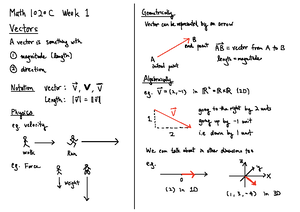 Math 1020C Week 1
Vectors
A vector is something with
① magnitude (length)
② direction
Notation vector : v⃗, v, v⃗
length : |v⃗| = ‖v⃗‖
Physics
eg. velocity
walk
run
eg. Force
weight
Geometrically
Vector can be represented by an arrow
B
end point
A
initial point
AB⃗ = vector from A to B
length = magnitude
Algebraically
eg. v⃗ = (2,-1) in ℝ² = ℝ×ℝ (2D)
1
v⃗
2
going to the right by 2 units
going up by -1 unit
i.e. down by 1 unit
We can talk about in other dimensions too
eg.
0
(2) in 1D
z
y
x
(1, 3, -4) in 3D